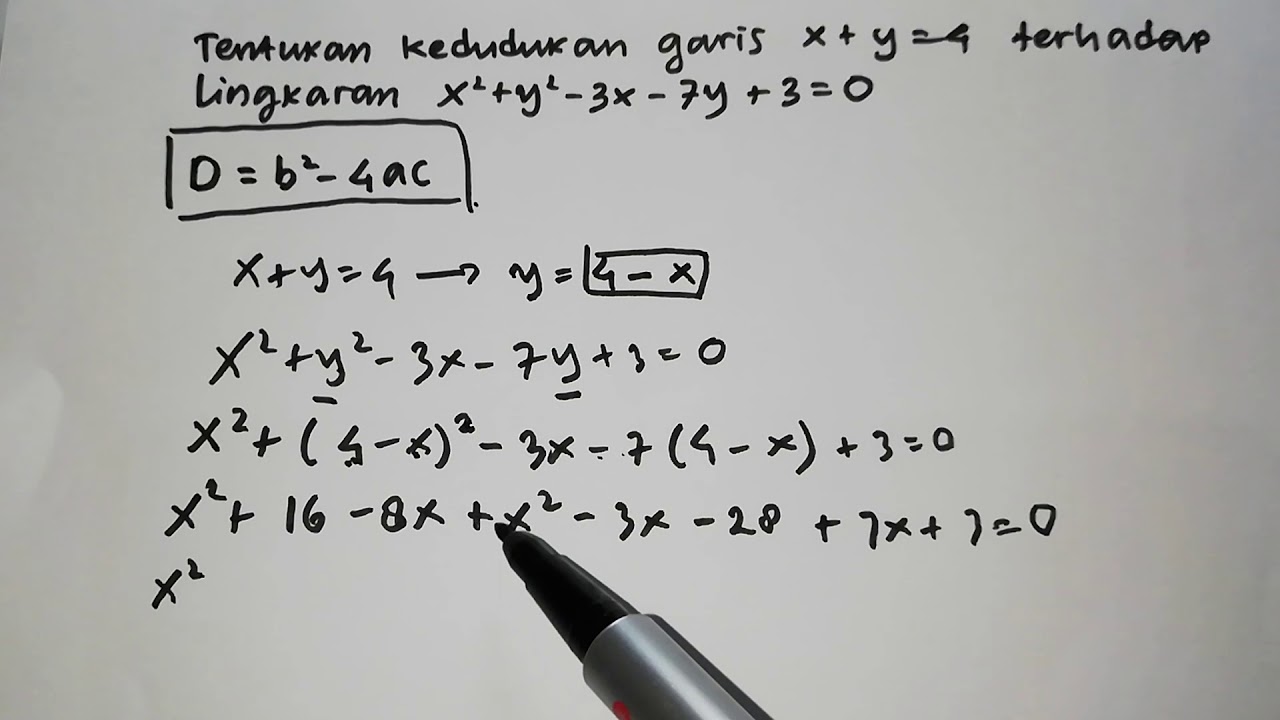 Tentukan kedudukan garis x + y = 4 terhadap
Lingkaran x² + y² - 3x - 7y + 3 = 0
D = b² - 4ac
x + y = 4 → y = 4 - x
x² + y² - 3x - 7y + 3 = 0
x² + (4 - x)² - 3x - 7 (4 - x) + 3 = 0
x² + 16 - 8x + x² - 3x - 28 + 7x + 3 = 0
x²